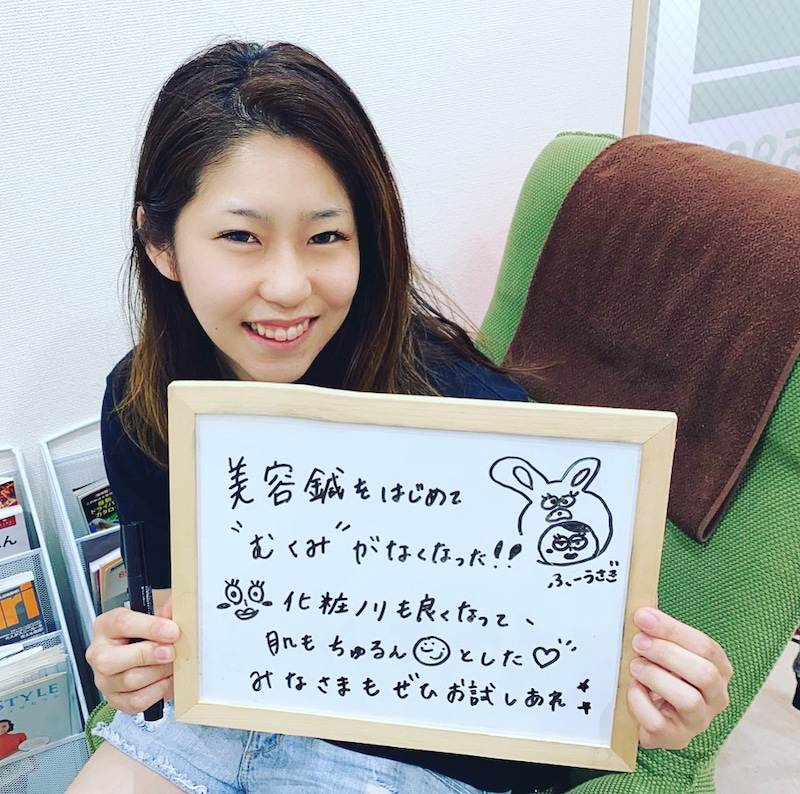 美容鍼をはじめて
"むくみ"がなくなった!!
ふぃーうさぎ
化粧ノリも良くなって、
肌もちゅるんとした♡
みなさまもぜひお試しあれ
STYLE